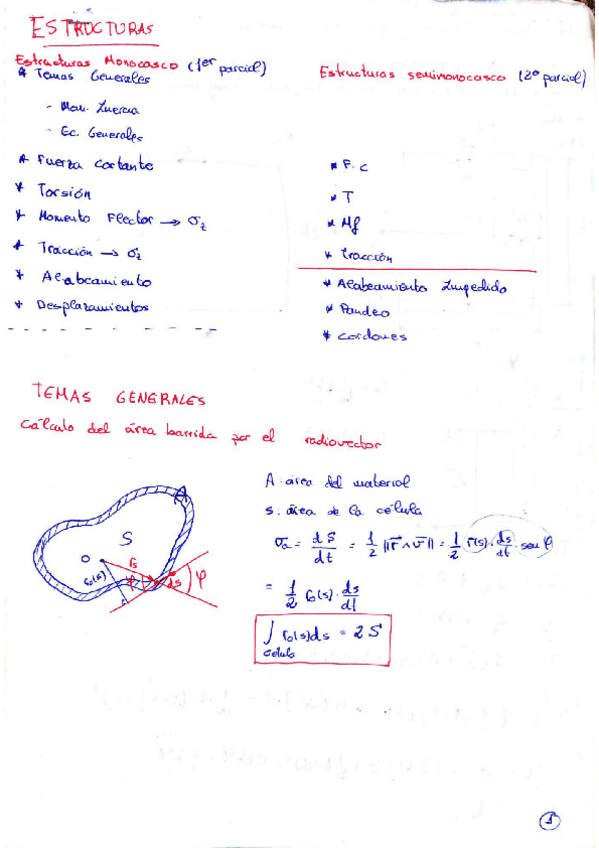 ESTRUCTURAS
Estructuras Monocasco (1er parcial)
* Temas Generales
- Mom. Inercia
- Ec. Generales
* Fuerza cortante
* Torsión
* Momento Flector → σz
* Tracción → σz
* Alabeamiento
* Desplazamientos
Estructuras semimonocasco (2º parcial)
* F.c
* T
* Mf
* tracción
* Alabeamiento Impedido
* Pandeo
* cordones
TEMAS GENERALES
Cálculo del área barrida por el radiovector
A: área del material
S: área de la célula
σa = dS/dt = 1/2 ||r⃗ ∧ v⃗|| = 1/2 r(s) · ds/dt · sen φ
= 1/2 r₀(s) · ds/dt
∫célula r₀(s) ds = 2S
S
O
rs
r₀(s)
φ
ds
φ
1